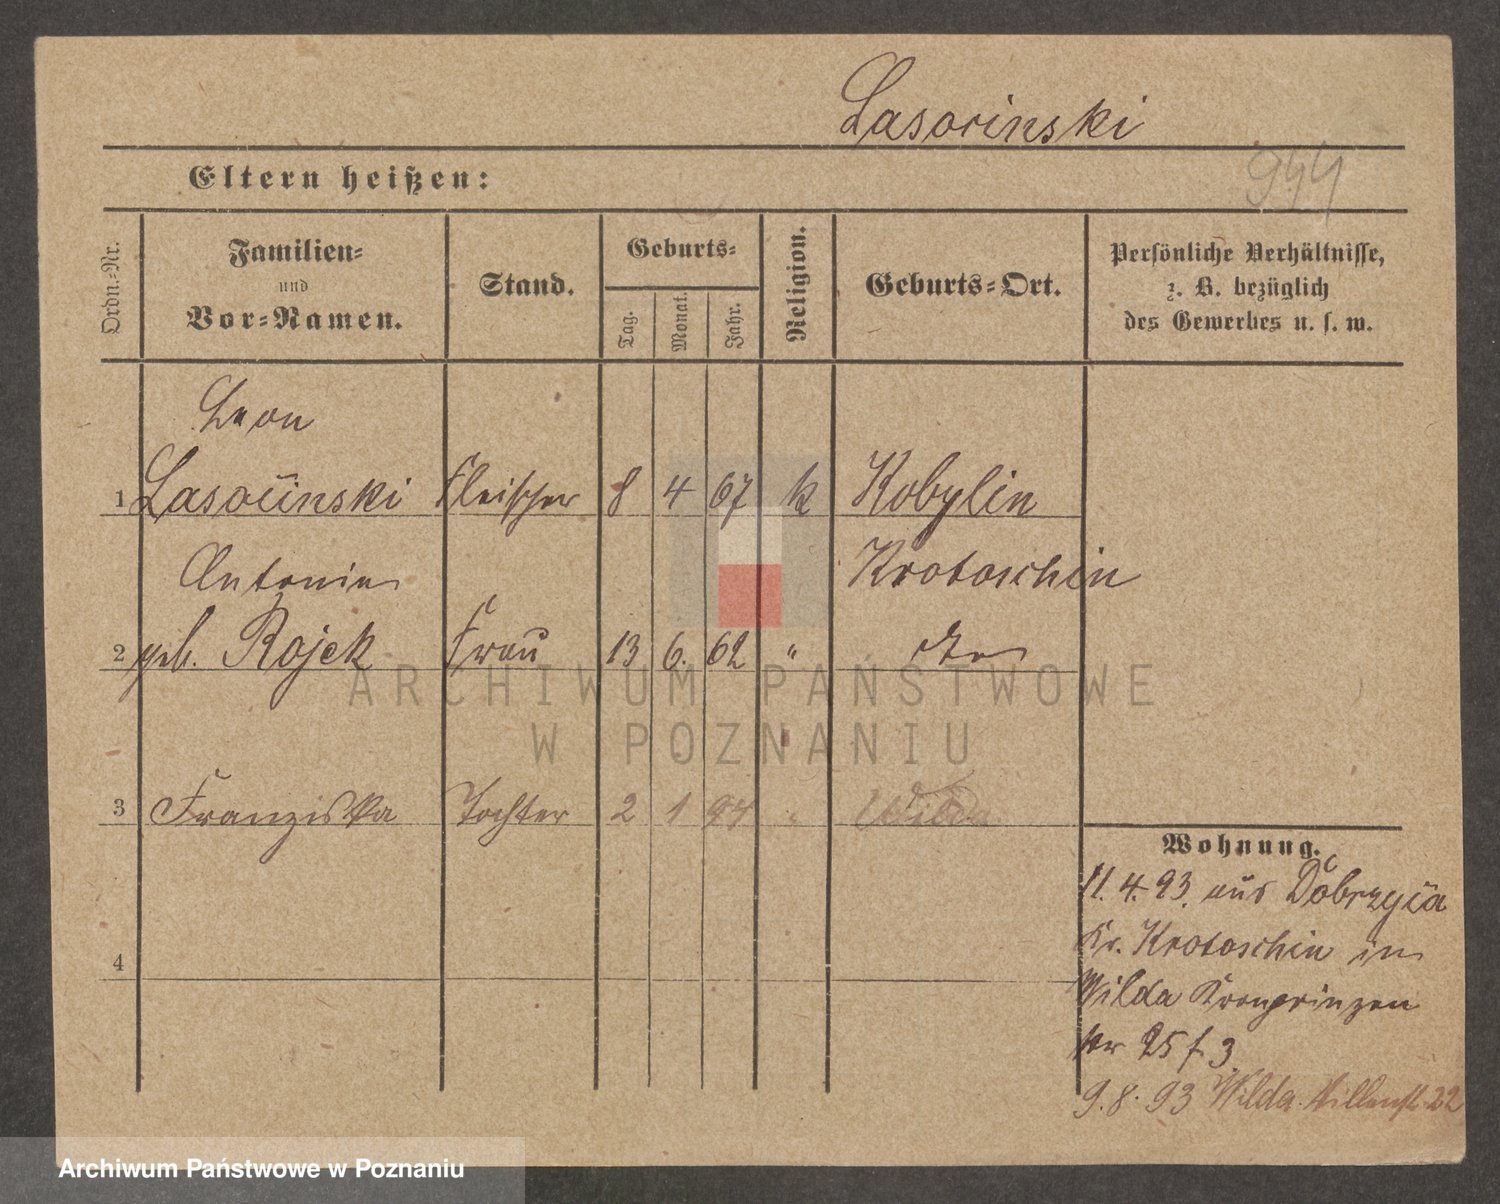 Lasorinski
944
Eltern heißen:
Ordn.-Nr.
Familien-
und
Vor-Namen.
Stand.
Geburts-
Tag.
Monat.
Jahr.
Religion.
Geburts-Ort.
Persönliche Verhältnisse,
z. B. bezüglich
des Gewerbes u. s. w.
Leon
1 Lasocinski Fleischer 8 4 67 k Kobylin
Antonie Krotoschin
2 geb. Rojek Frau 13 6. 62 " do
3 Franziska Tochter 2 1 94 " Wilda
4
Wohnung.
11. 4. 93. aus Dobrzyca
Kr. Krotoschin in
Wilda Kronprinzen
str 25 f. 3.
9. 8. 93 Wilda. 22
ARCHIWUM PAŃSTWOWE
W POZNANIU
Archiwum Państwowe w Poznaniu